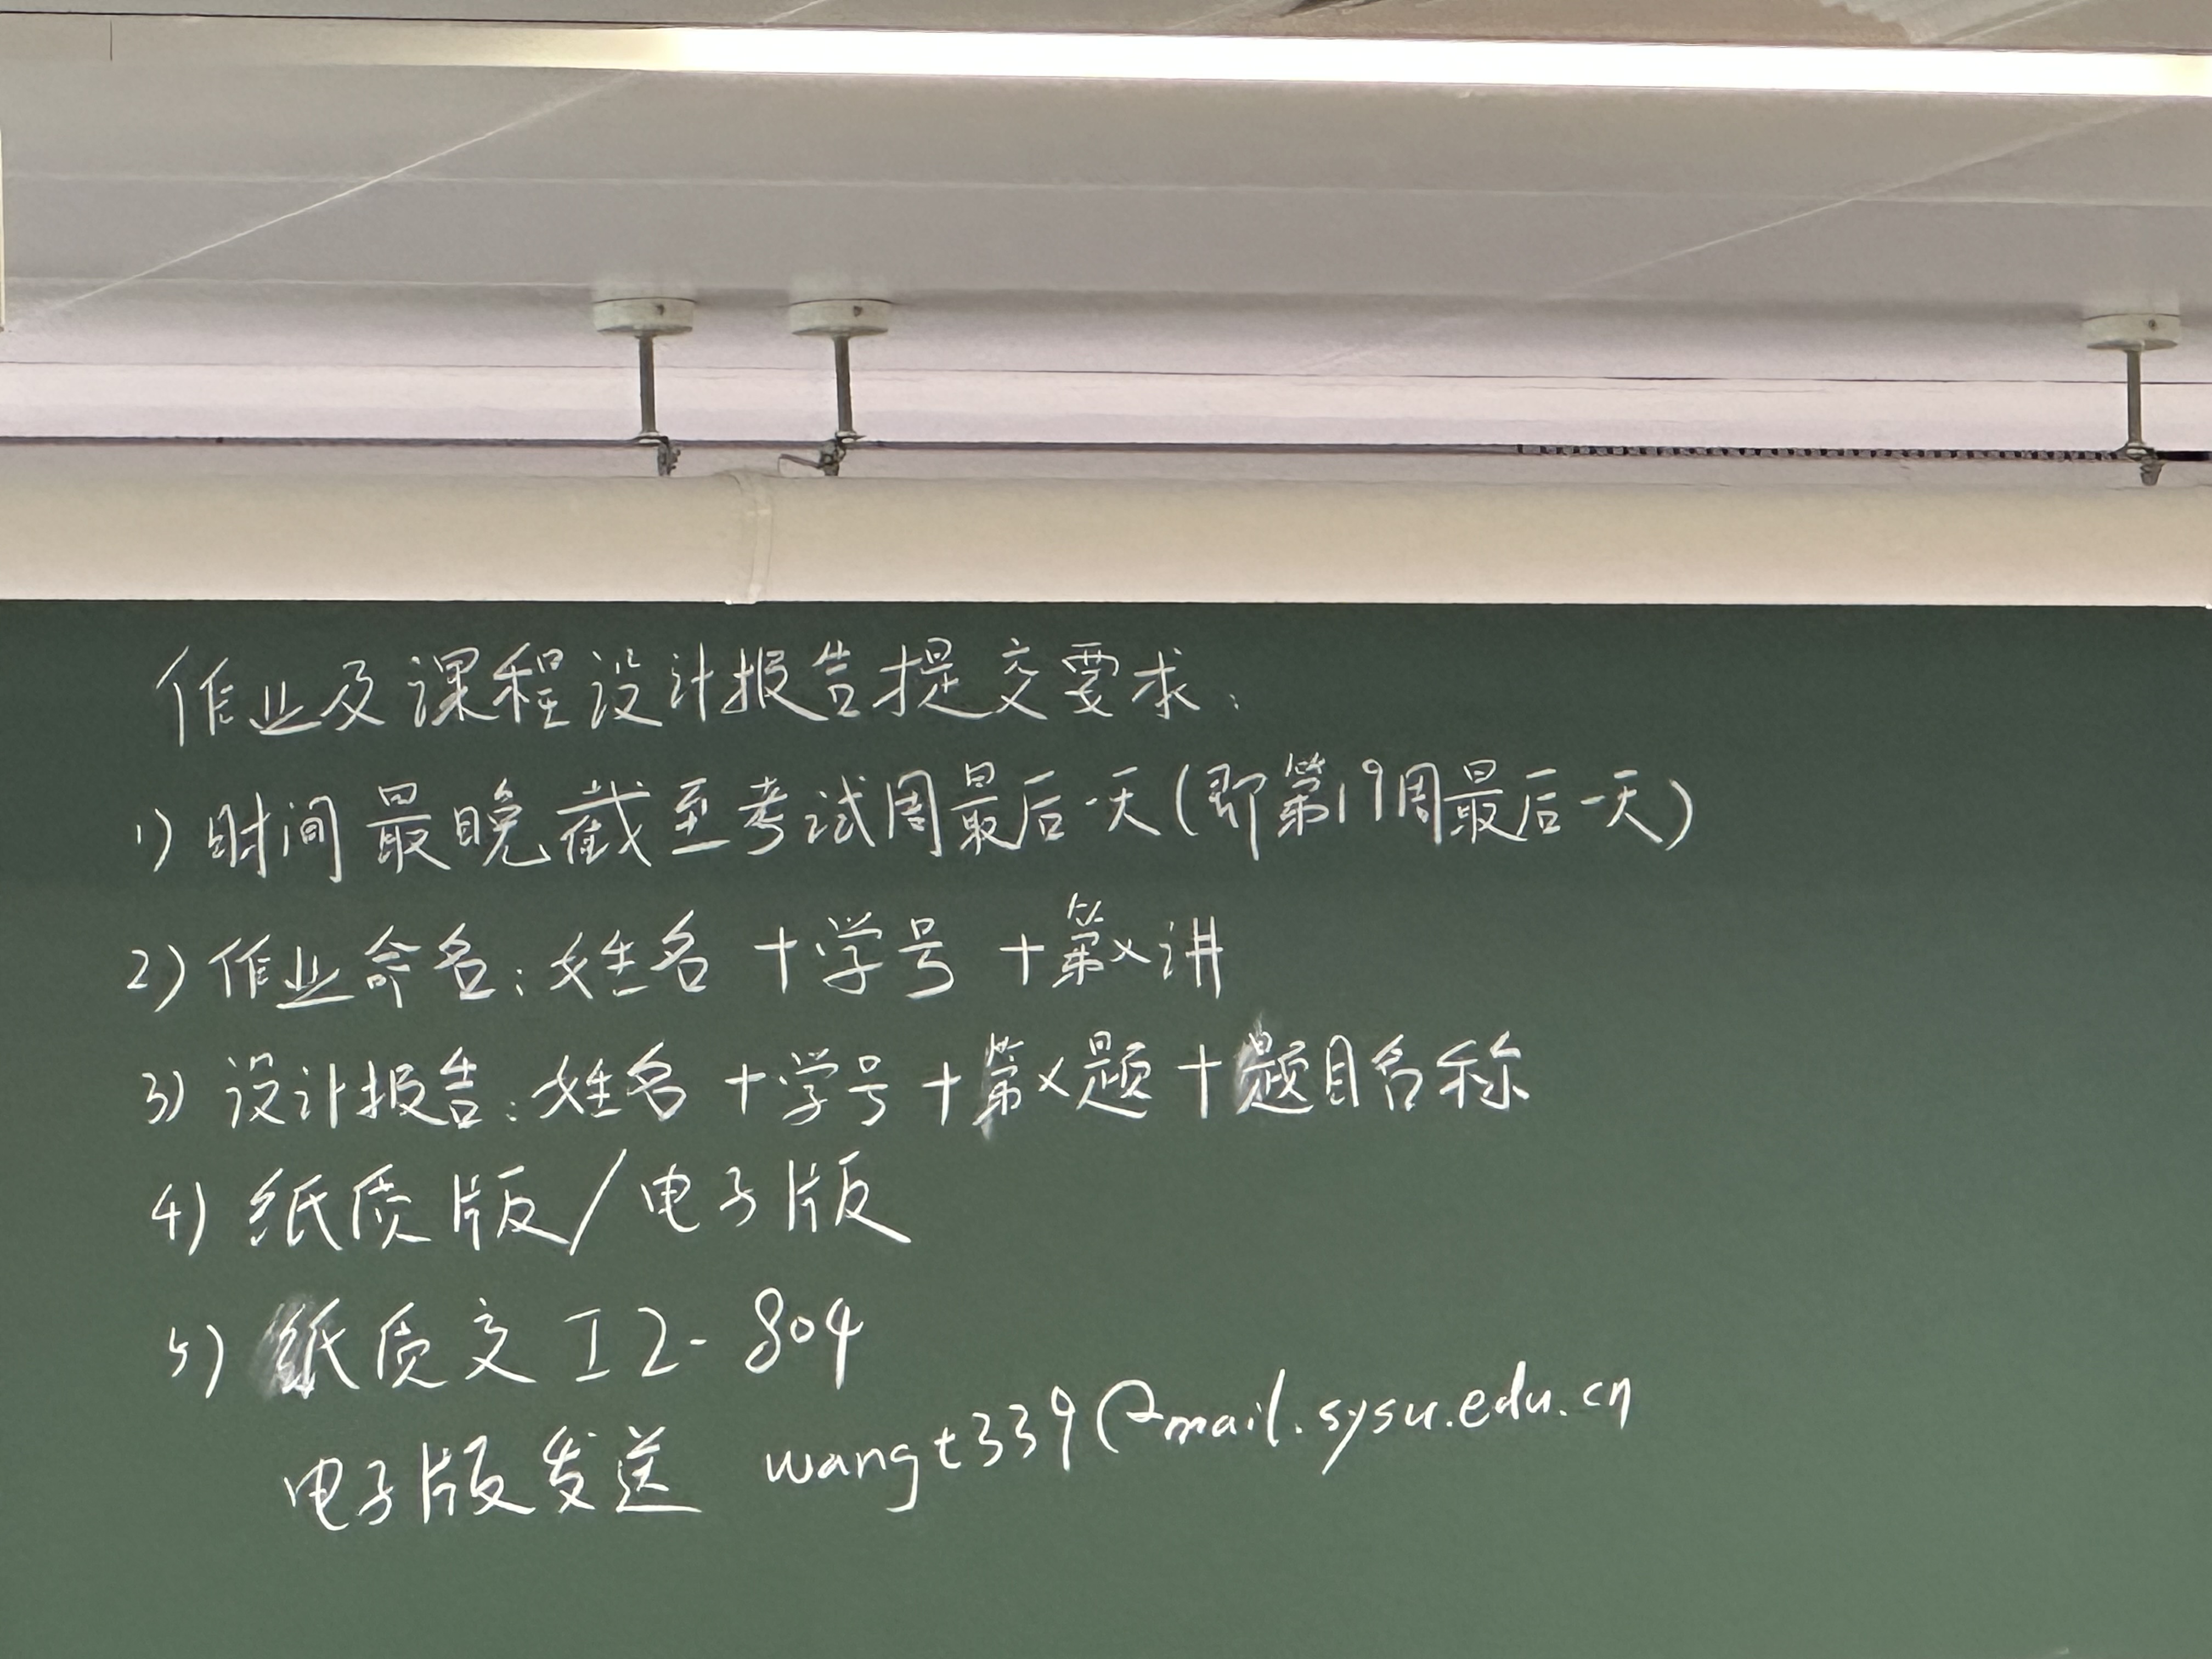 作业及课程设计报告提交要求:
1) 时间最晚截至考试周最后一天(即第19周最后一天)
2) 作业命名: 姓名+学号+第x讲
3) 设计报告: 姓名+学号+第x题+题目名称
4) 纸质版/电子版
5) 纸质交工2-804
电子版发送 wangt339@mail.sysu.edu.cn